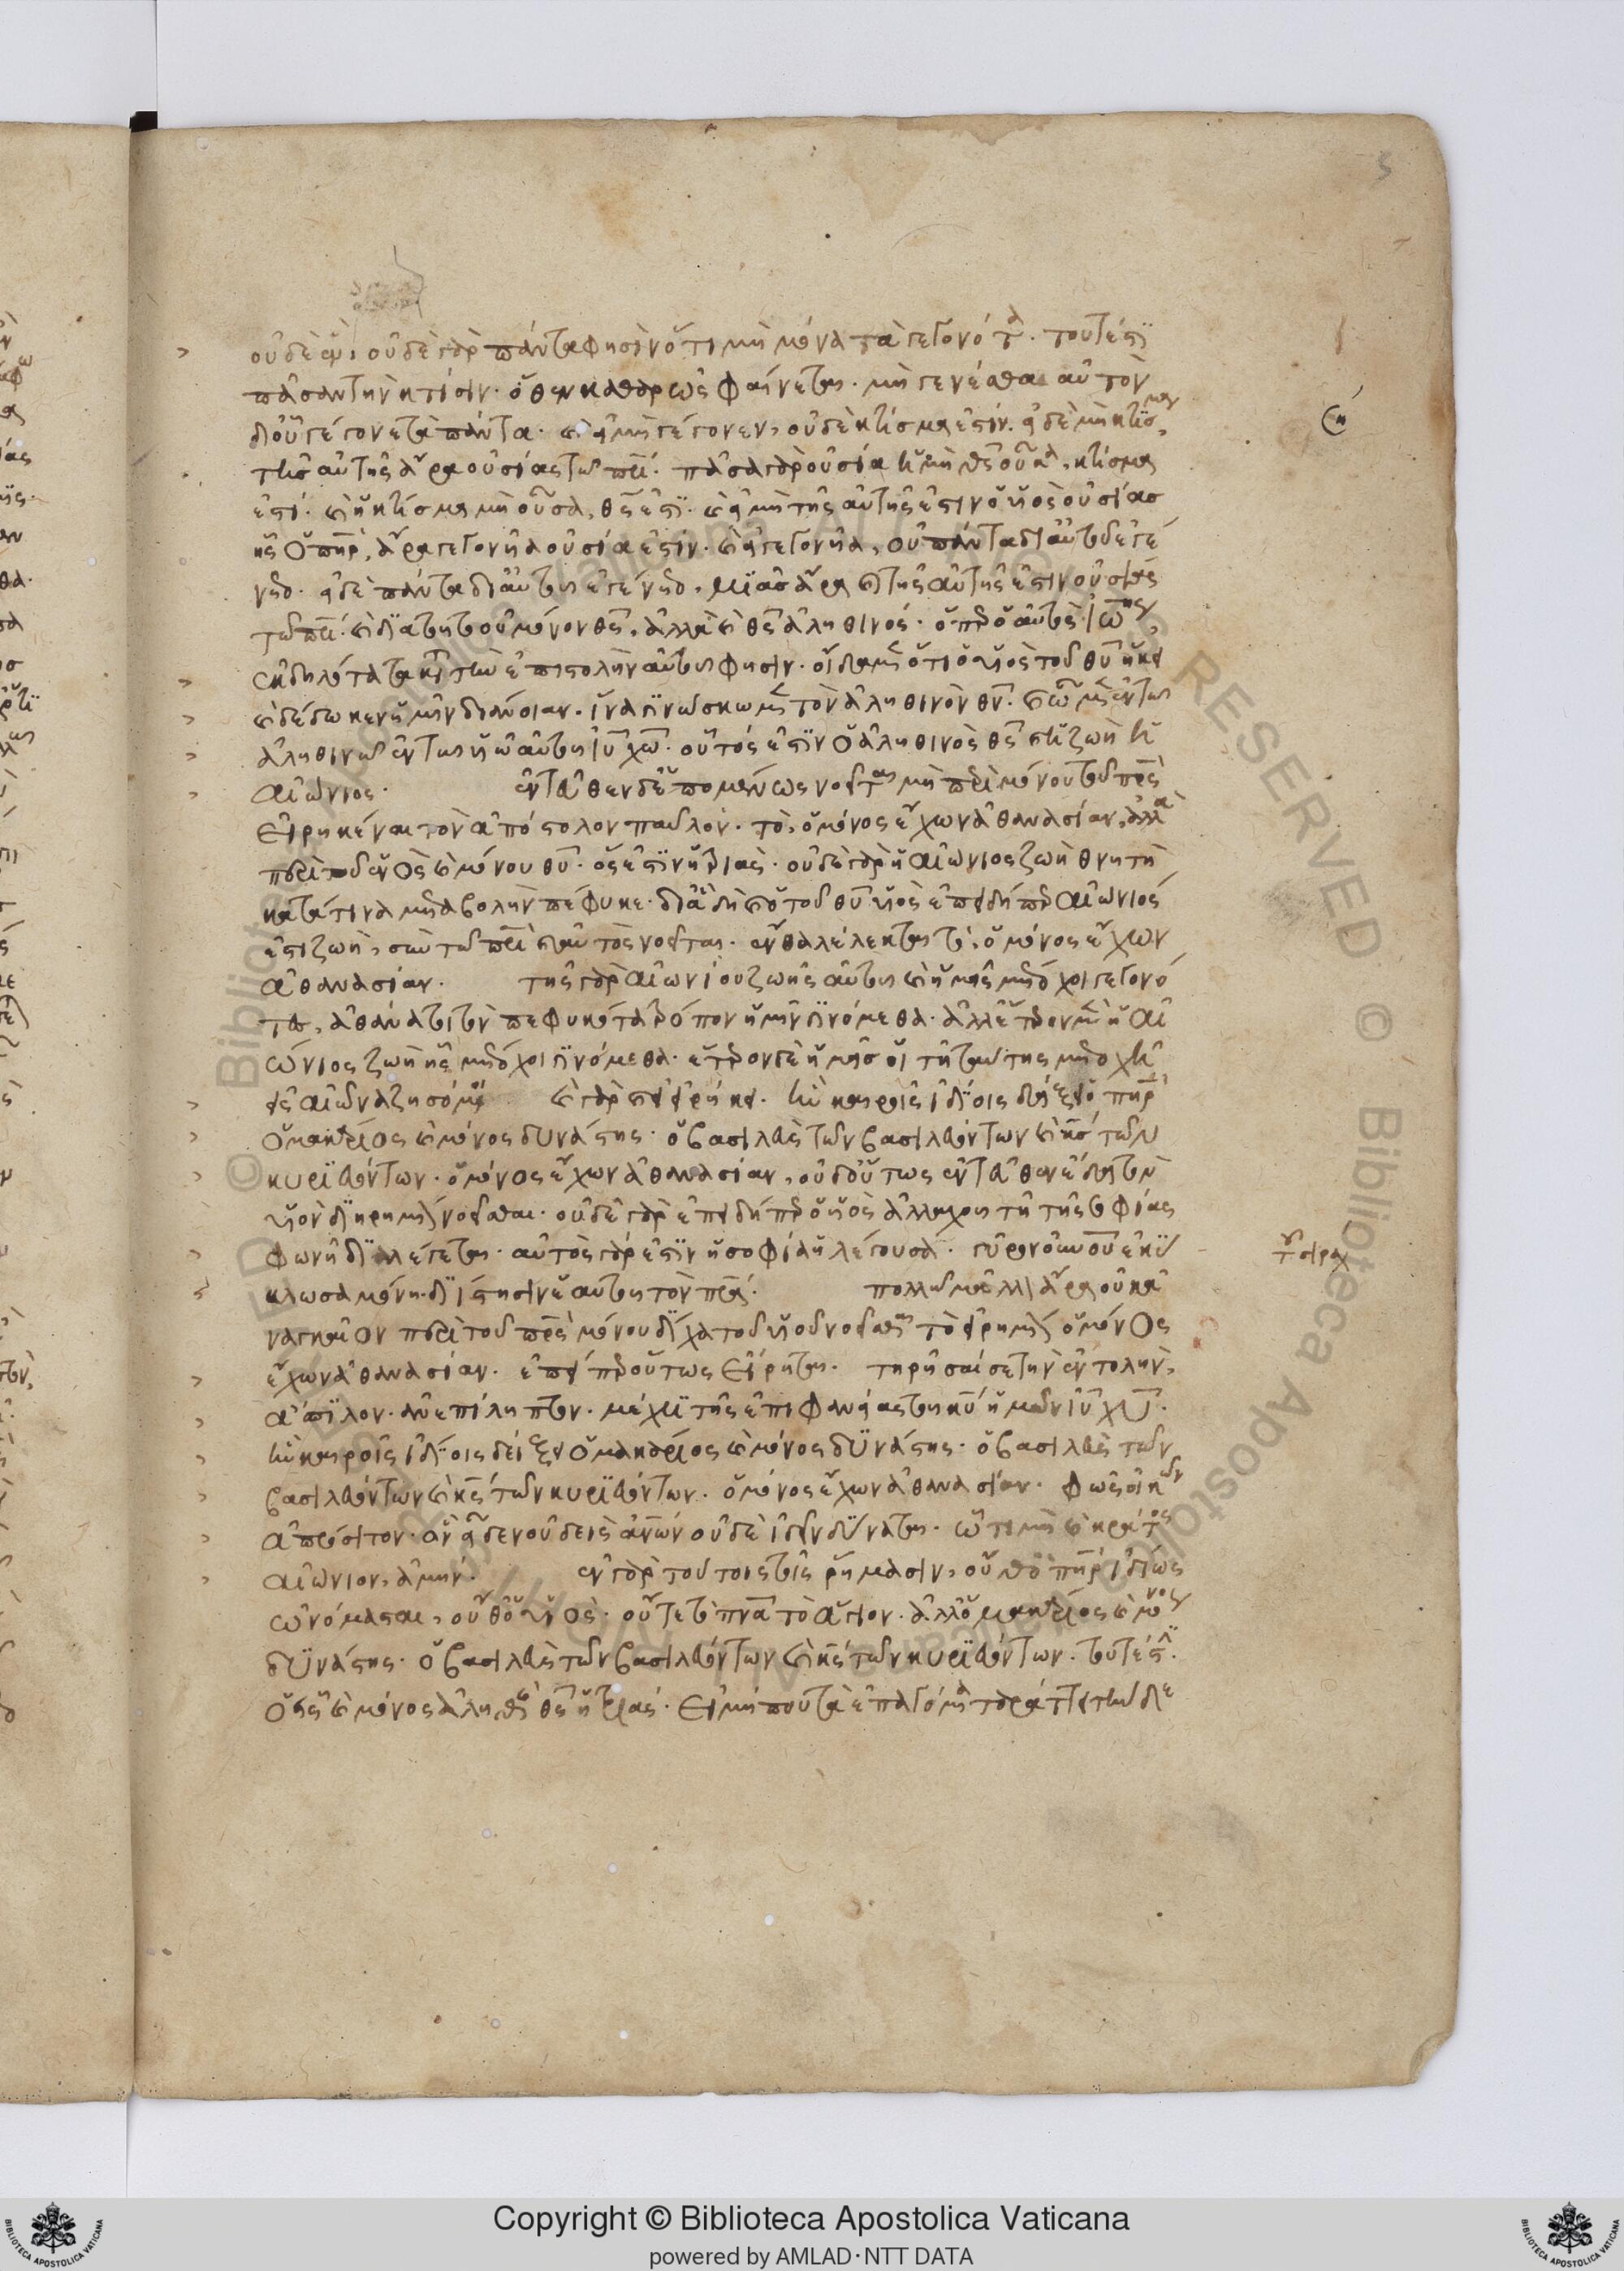 οὐδὲ ἕν, οὐδὲ γὰρ πάντα φησὶν ὅτι μὴ μόνα τὰ γεγονότα. τουτέστι
πᾶσαν τὴν κτίσιν. ὅθεν καθαρῶς φαίνεται. μὴ γενέσθαι αὐτὸν
δι' οὗ γέγονε τὰ πάντα. καὶ εἰ μὴ γέγονεν, οὐδὲ κτίσμα ἐστίν. εἰ δὲ μὴ κτίσμα,
τῆς αὐτῆς ἄρα οὐσίας τῷ πρι. πᾶσα γὰρ οὐσία ἣ μὴ θς οὖσα, κτίσμα
ἐστί. καὶ ἡ κτίσμα μὴ οὖσα, θς ἐστι. καὶ εἰ μὴ τῆς αὐτῆς ἐστιν ὁ υἱὸς οὐσίας
ἧς ὁ πηρ, ἄρα γεγονυῖα οὐσία ἐστίν. καὶ εἰ γεγονυῖα, οὐ πάντα δι' αὐτοῦ ἐγέ
νετο. εἰ δὲ πάντα δι' αὐτοῦ ἐγένετο, μιᾶς ἄρα καὶ τῆς αὐτῆς ἐστιν οὐσίας
τῷ πρι. καὶ διὰ τοῦτο οὐ μόνον θς, ἀλλὰ καὶ θς ἀληθινός. ὅπερ ὁ αὐτὸς Ἰωάννης,
ἐκδηλότατα κατὰ τὴν ἐπιστολὴν αὐτοῦ φησιν. οἴδαμεν ὅτι ὁ υἱὸς τοῦ θυ ἥκει
καὶ δέδωκεν ἡμῖν διάνοιαν. ἵνα γινώσκωμεν τὸν ἀληθινὸν θν. καὶ ὦμεν ἐν τῷ
ἀληθινῷ ἐν τῷ υἱῷ αὐτοῦ ιυ χω. οὗτός ἐστιν ὁ ἀληθινὸς θς καὶ ἡ ζωὴ ἡ
αἰώνιος. ἐνταῦθεν δ' ἑπομένως νοεῖται μὴ περὶ μόνου τοῦ πρς
εἰρηκέναι τὸν ἀπόστολον παῦλον. τὸ, ὁ μόνος ἔχων ἀθανασίαν, ἀλλὰ
περὶ τοῦ ἑνὸς καὶ μόνου θυ. ὅς ἐστιν ἡ τριάς. οὐδὲ γὰρ ἡ αἰώνιος ζωὴ θνητὴ
κατά τινα μεταβολὴν πέφυκε. διὰ δὴ καὶ ὁ τοῦ θυ υἱὸς ἐπειδήπερ αἰώνιός
ἐστι ζωὴ, σὺν τῷ πρι καὶ αὐτὸς νοεῖται. ἔνθα λέλεκται τὸ, ὁ μόνος ἔχων
ἀθανασίαν. τῆς γὰρ αἰωνίου ζωῆς αὐτοῦ καὶ ἡμεῖς μέτοχοι γεγονό
τες, ἀθάνατοι τὸν πεφυκότα τρόπον ἡμῖν γινόμεθα. ἀλλ' ἕτερον μὲν ἡ αἰ
ώνιος ζωὴ ἧς μέτοχοι γινόμεθα. ἕτερον δὲ ἡμεῖς οἳ τῇ ταύτης μετοχῇ
εἰς αἰῶνα ζησόμεθα καὶ γὰρ εἰ εἰρήκει. ἣν καιροῖς ἰδίοις δείξει ὁ πηρ
ὁ μακάριος καὶ μόνος δυνάστης. ὁ βασιλεὺς τῶν βασιλευόντων καὶ κς τῶν
κυριευόντων. ὁ μόνος ἔχων ἀθανασίαν, οὐδ' οὕτως ἐνταῦθεν ἔδει τὸν
υἱὸν διῃρημένον νοεῖσθαι. οὐδὲ γὰρ ἐπειδήπερ ὁ υἱὸς ἀλλαχοῦ τῇ τῆς σοφίας
φωνῇ διαλέγεται. αὐτὸς γάρ ἐστιν ἡ σοφία ἡ λέγουσα. γῦρον οὐρανοῦ ἐκύ
κλωσα μόνη. διίστησιν ἑαυτοῦ τὸν πρα. πολλῷ μᾶλλον ἄρα οὐκ ἀ
ναγκαῖον περὶ τοῦ πρς μόνου δίχα τοῦ υἱοῦ νοεῖσθαι τὸ εἰρημένον ὁ μόνος
ἔχων ἀθανασίαν. ἐπείπερ οὕτως εἴρηται. τηρῆσαί σε τὴν ἐντολὴν,
ἄσπιλον. ἀνεπίληπτον. μέχρι τῆς ἐπιφανείας τοῦ κυ ἡμῶν ιυ χυ.
ἣν καιροῖς ἰδίοις δείξει ὁ μακάριος καὶ μόνος δυνάστης. ὁ βασιλεὺς τῶν
βασιλευόντων καὶ κς τῶν κυριευόντων. ὁ μόνος ἔχων ἀθανασίαν. φῶς οἰκῶν
ἀπρόσιτον. ὃν εἶδεν οὐδεὶς ἀνων οὐδὲ ἰδεῖν δύναται. ᾧ τιμὴ καὶ κράτος
αἰώνιον, ἀμήν. ἐν γὰρ τούτοις τοῖς ῥήμασιν, οὔθ' ὁ πηρ ἰδίως
ὠνόμασται, οὔθ' ὁ υἱός. οὔτε τὸ πνα τὸ ἅγιον. ἀλλ' ὁ μακάριος καὶ μόνος
δυνάστης. ὁ βασιλεὺς τῶν βασιλευόντων καὶ κς τῶν κυριευόντων. τουτέστιν.
ὁ εἷς καὶ μόνος ἀληθὴς θς ἡ τριάς. εἰ μή που τὰ ἐπαγόμενα ταράττει τὴν δὲ